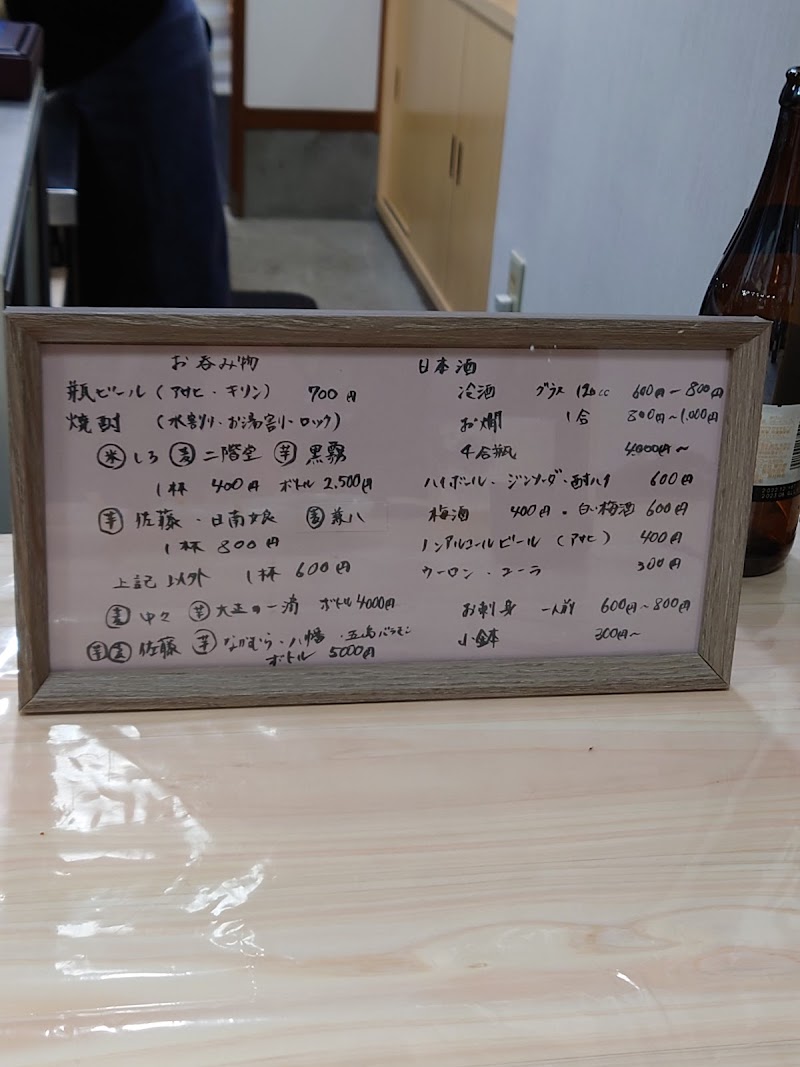 お呑み物
瓶ビール (アサヒ・キリン) 700円
焼酎 (水割り・お湯割り・ロック)
米 しろ 麦 二階堂 芋 黒霧
1杯 400円 ボトル 2,500円
芋 佐藤・日南娘 麦 兼八
1杯 800円
上記以外 1杯 600円
麦 中々 芋 大正の一滴 ボトル4000円
芋麦 佐藤 芋 なかむら・八幡・五島バラモン
ボトル 5000円
日本酒
冷酒 グラス 120cc 600円~800円
お燗 1合 800円~1,000円
4合瓶 4,000円~
ハイボール・ジンソーダ・酎ハイ 600円
梅酒 400円・白い梅酒 600円
ノンアルコールビール (アサヒ) 400円
ウーロン・コーラ 300円
お刺身 一人前 600円~800円
小鉢 300円~